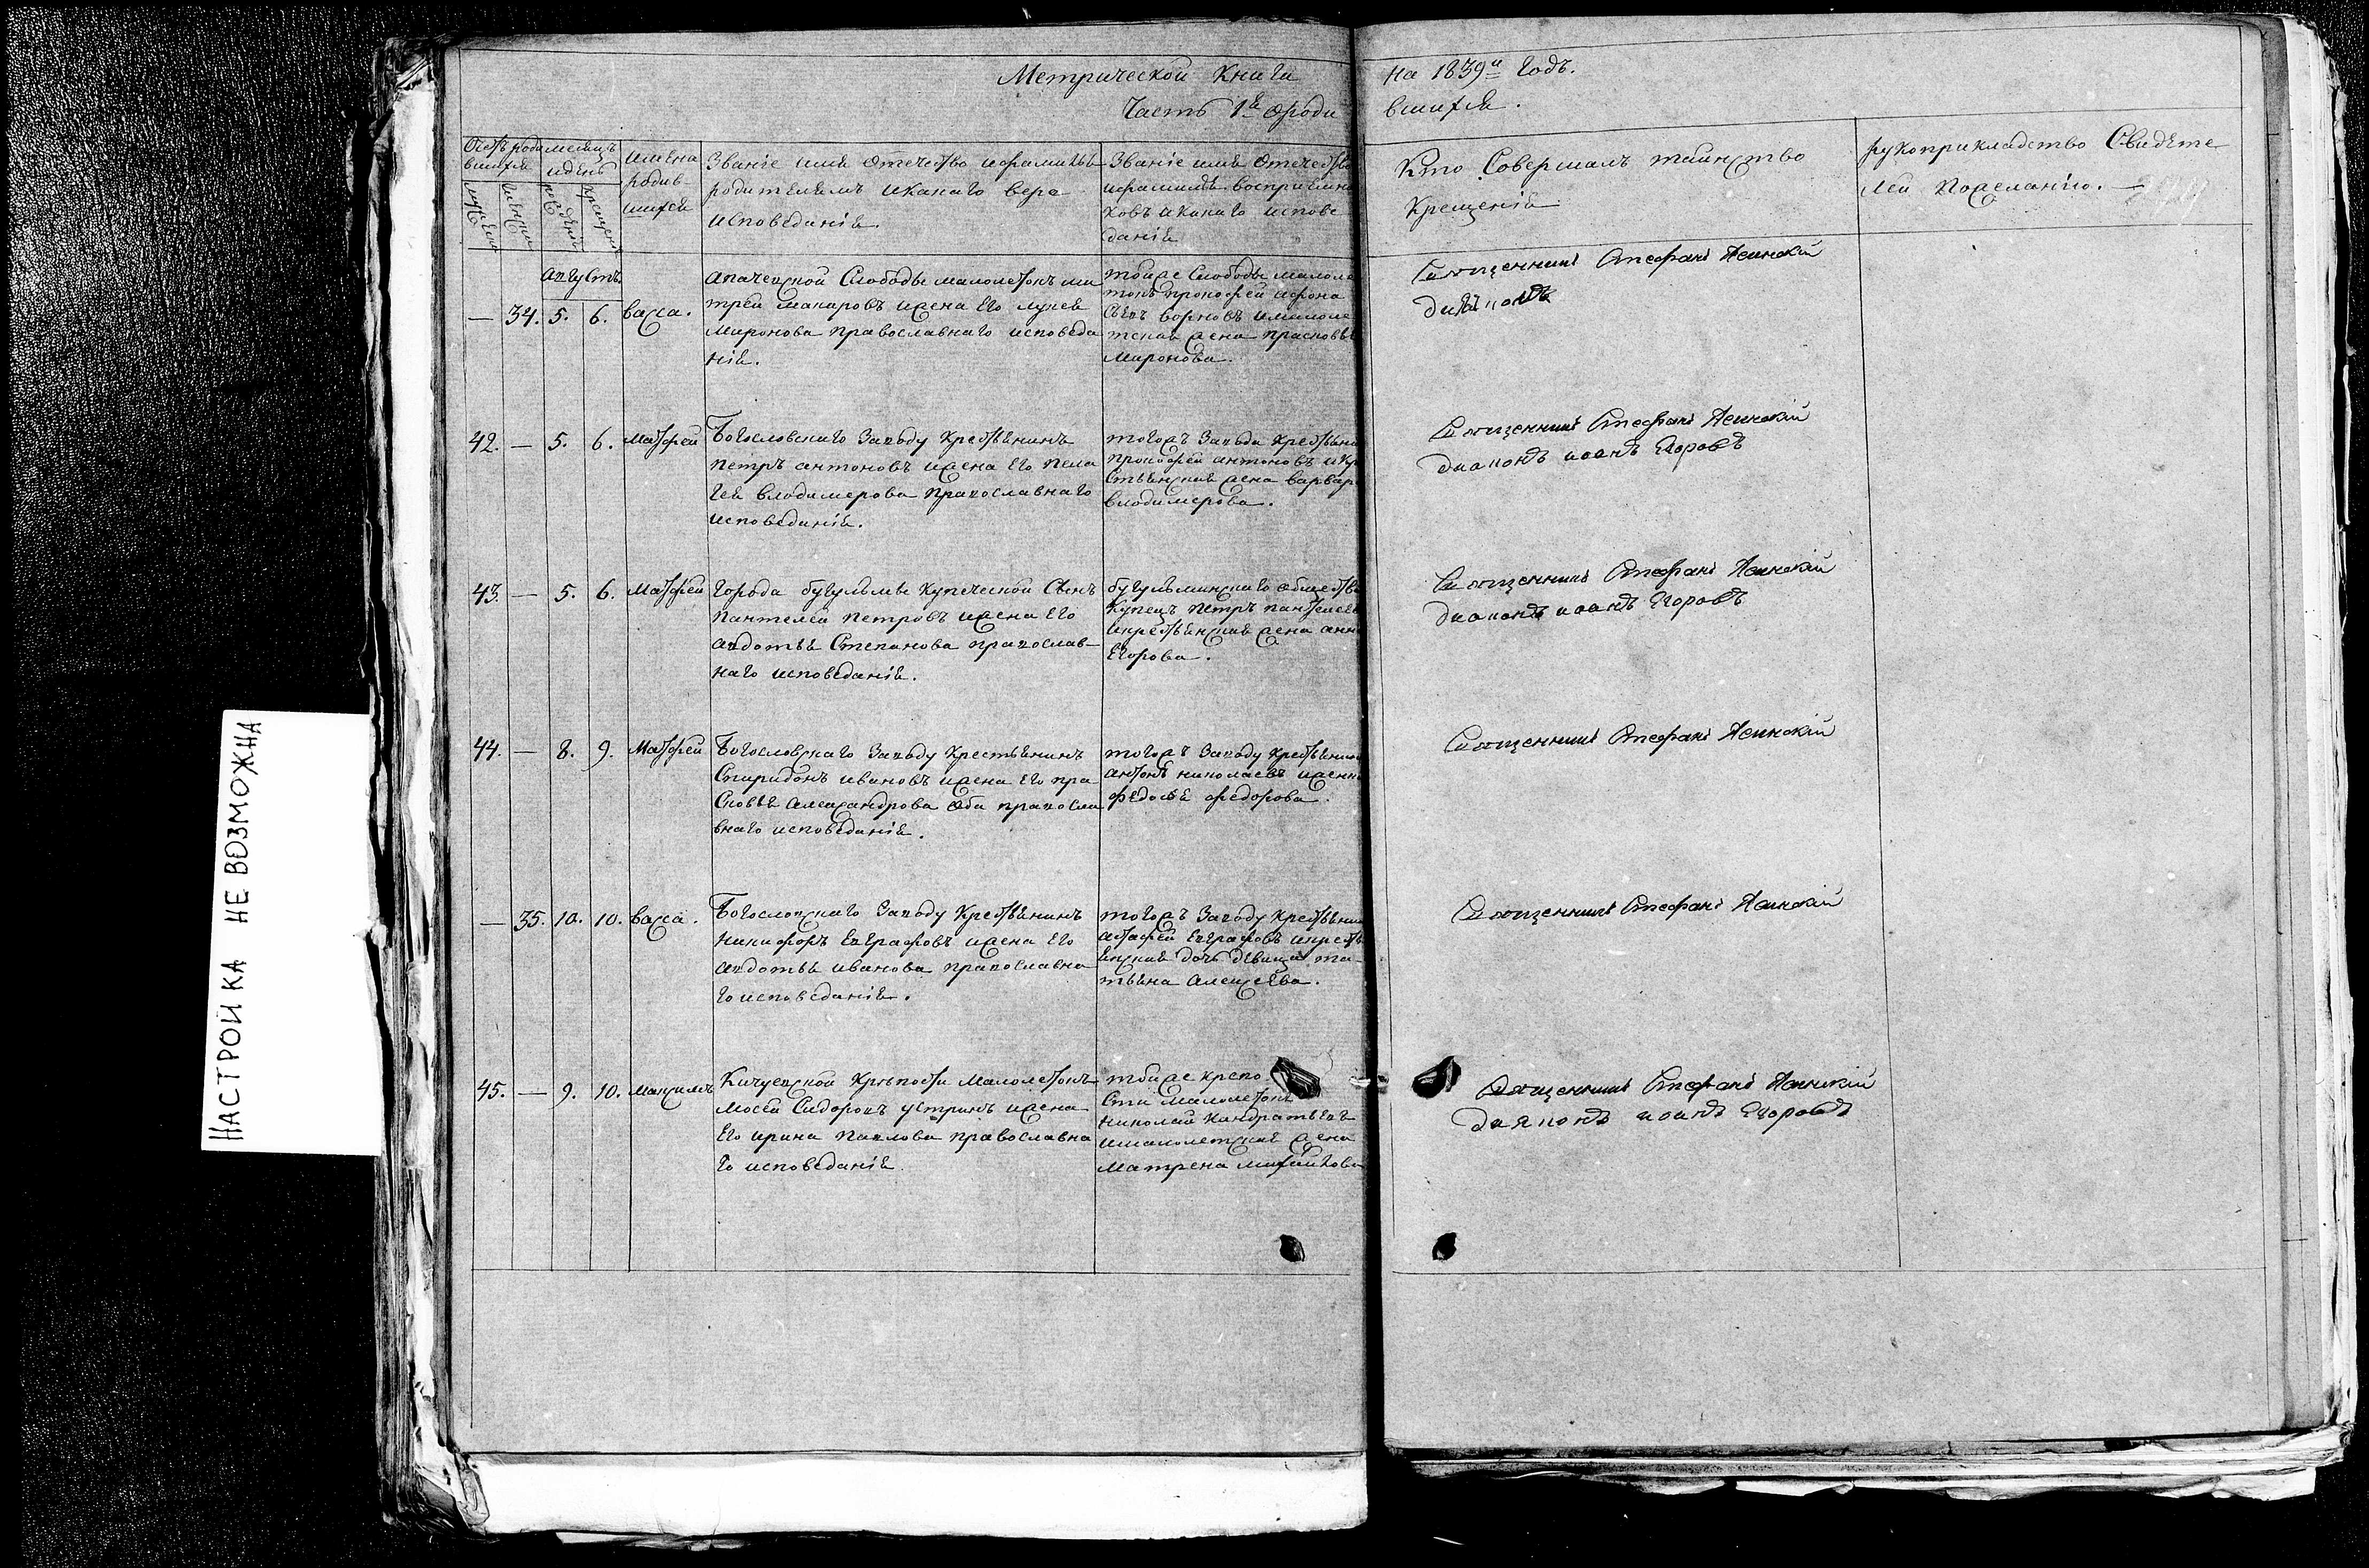 Метрической Книги на 1839й Годъ.
Часть 1я Ороди вшихся.
Счетъ роди вшихся
месяцъ идень
имена родив шихся
Званіе имя Отечество ифамилія
родителемъ икакаго вера
исповеданія
Званіе имя Отечество
ифамилія восприемни
ковъ икакаго испове
данія
Кто Совершалъ таинство
Крещенія
рукоприкладство Свидѣте
лей Пожеланію.
августъ
— 34. 5. 6. васса.
Слободы малолетокъ
макаровъ ижена Его
Миронова православнаго исповеда
нія.
тойже Слободы малоле
токъ прокофей
жена прасковья
Миронова.
Священникъ Стефанъ
42. — 5. 6. Матфей
Богословскаго Заводу Крестьянинъ
петръ антоновъ ижена Его пела
гея владимерова православнаго
исповеданія.
тогожъ Завода Крестьяни
прокофей антоновъ икре
стьянская жена варвар
владимерова.
Священникъ Стефанъ
диаконъ иоанъ Егоровъ
43. — 5. 6. Матфей
города бугульмы Купеческой Сынъ
Пантелей Петровъ ижена Его
авдотья Степанова православ
наго исповеданія.
бугульминскаго обществ
Купецъ Петръ пантелеев
икрестьянская жена анн
Егорова.
Священникъ Стефанъ
диаконъ иоанъ Егоровъ
44. — 8. 9. Матфей
Богословскаго Заводу Крестьянинъ
Спиридонъ ивановъ ижена Его пра
сковья александрова оба правосла
внаго исповеданія.
тогожъ Заводу Крестьянин
антонъ николаевъ ижена
федосья федорова.
Священникъ Стефанъ
— 35. 10. 10. васса.
Богословскаго Заводу Крестьянинъ
никифоръ Евграфовъ ижена Его
авдотья иванова православна
го исповеданія.
тогожъ Заводу Крестьяни
Евграфовъ икресть
янская дочь девица та
тьяна алексѣева.
Священникъ Стефанъ
45. — 9. 10. Максимъ
Кичуевской Крѣпости Малолетокъ
Мосей Сидоровъ устринъ ижена
Его ирина павлова православна
го исповеданія
тойже крепо
сти Малолетокъ
николай Кандратьевъ
ималолетская жена
Матрена михайлова
Священникъ Стефанъ
диаконъ иоанъ Егоровъ
НАСТРОЙКА НЕ ВОЗМОЖНА